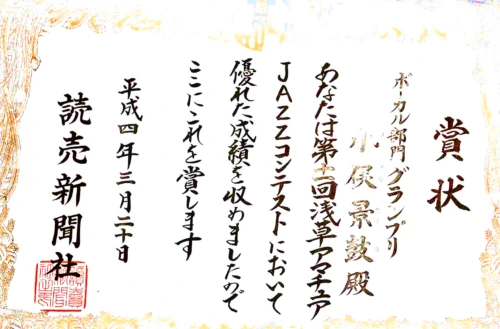 賞状
ボーカル部門 グランプリ
小俣景鼓殿
あなたは第十一回浅草アマチュア
JAZZコンテストにおいて
優れた成績を収めましたので
ここにこれを賞します
平成四年三月二十日
読売新聞社